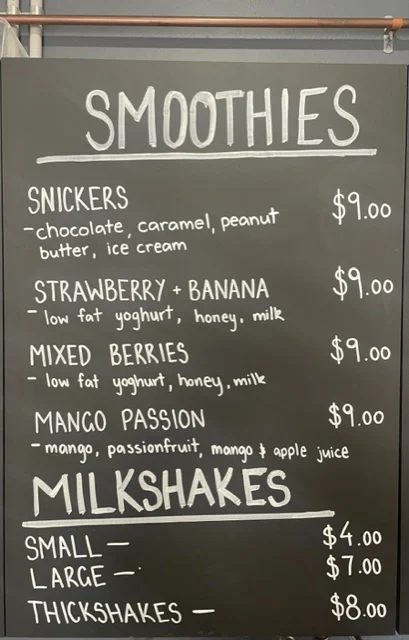 SMOOTHIES
SNICKERS $9.00
-chocolate, caramel, peanut
butter, ice cream
STRAWBERRY + BANANA $9.00
- low fat yoghurt, honey, milk
MIXED BERRIES $9.00
- low fat yoghurt, honey, milk
MANGO PASSION $9.00
- mango, passionfruit, mango & apple juice
MILKSHAKES
SMALL — $4.00
LARGE — $7.00
THICKSHAKES — $8.00